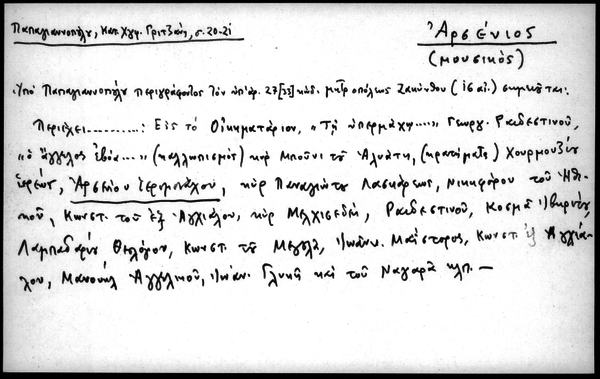 Παπαγιαννοπούλου, Κατ. Χγφ. Γριτζάνη, σ. 20-21
Ἀρσένιος
(μουσικός)
Ὑπό Παπαγιαννοπούλου περιγράφοντος τόν ὑπ' ἀρ. 27[33] κώδ. μητροπόλεως Ζακύνθου (ις αἰ.) σημειοῦται:
Περιέχει.........: Εἰς τό Οἰκηματάριον, «Τῇ ὑπερμάχῳ....» Γεωργ. Ραιδεστινοῦ,
«ὁ ἄγγελος ἐβόα...» (καλλωπισμός) κύρ Μπούνι τοῦ Ἀλυάτη, (κρατήματα) Χουρμουζίου
ἱερέως, Ἀρσενίου ἱερομονάχου, κύρ Παναγιώτου Λασκάρεως, Νικηφόρου τοῦ Ἠθι-
κοῦ, Κωνστ. τοῦ ἐξ Ἀγχιάλου, κύρ Μελχισεδέκ, Ραιδεστινοῦ, Κοσμᾶ Ἰβηρίτου,
Λαμπαδαρίου Θεολόγου, Κωνστ. τοῦ Μαγουλᾶ, Ἰωάννου Μαΐστορος, Κωνστ. ἐξ Ἀγχιά-
λου, Μανουήλ Ἀγγελικοῦ, Ἰωάν. Γλυκῆ καί τοῦ Ναγαρᾶ κλπ. —